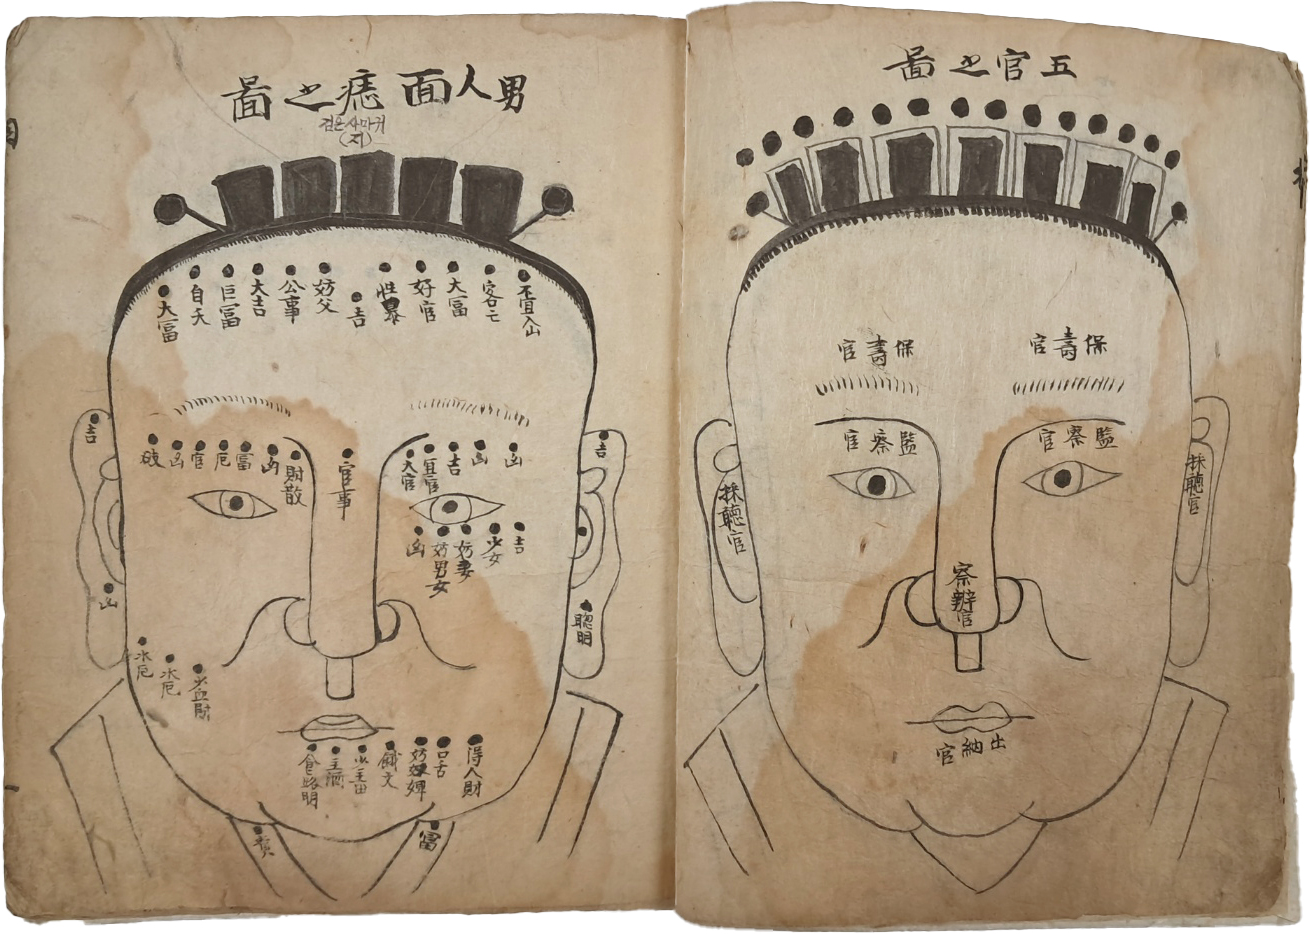 五官之圖
保壽官
保壽官
監察官
監察官
採聽官
採聽官
察辨官
出納官
男人面痣之圖
검은사마귀
(지)
不宜入山
客亡
大富
好官
性暴
吉
妨父
公事
大吉
巨富
自夭
大富
吉
吉
凶
凶
吉
宜官
大官
官事
財散
凶
富
厄
官
凶
破
吉
少女
妨妻
妨男女
凶
聰明
凶
水厄
水厄
得人財
口舌
妨奴婢
富
貧